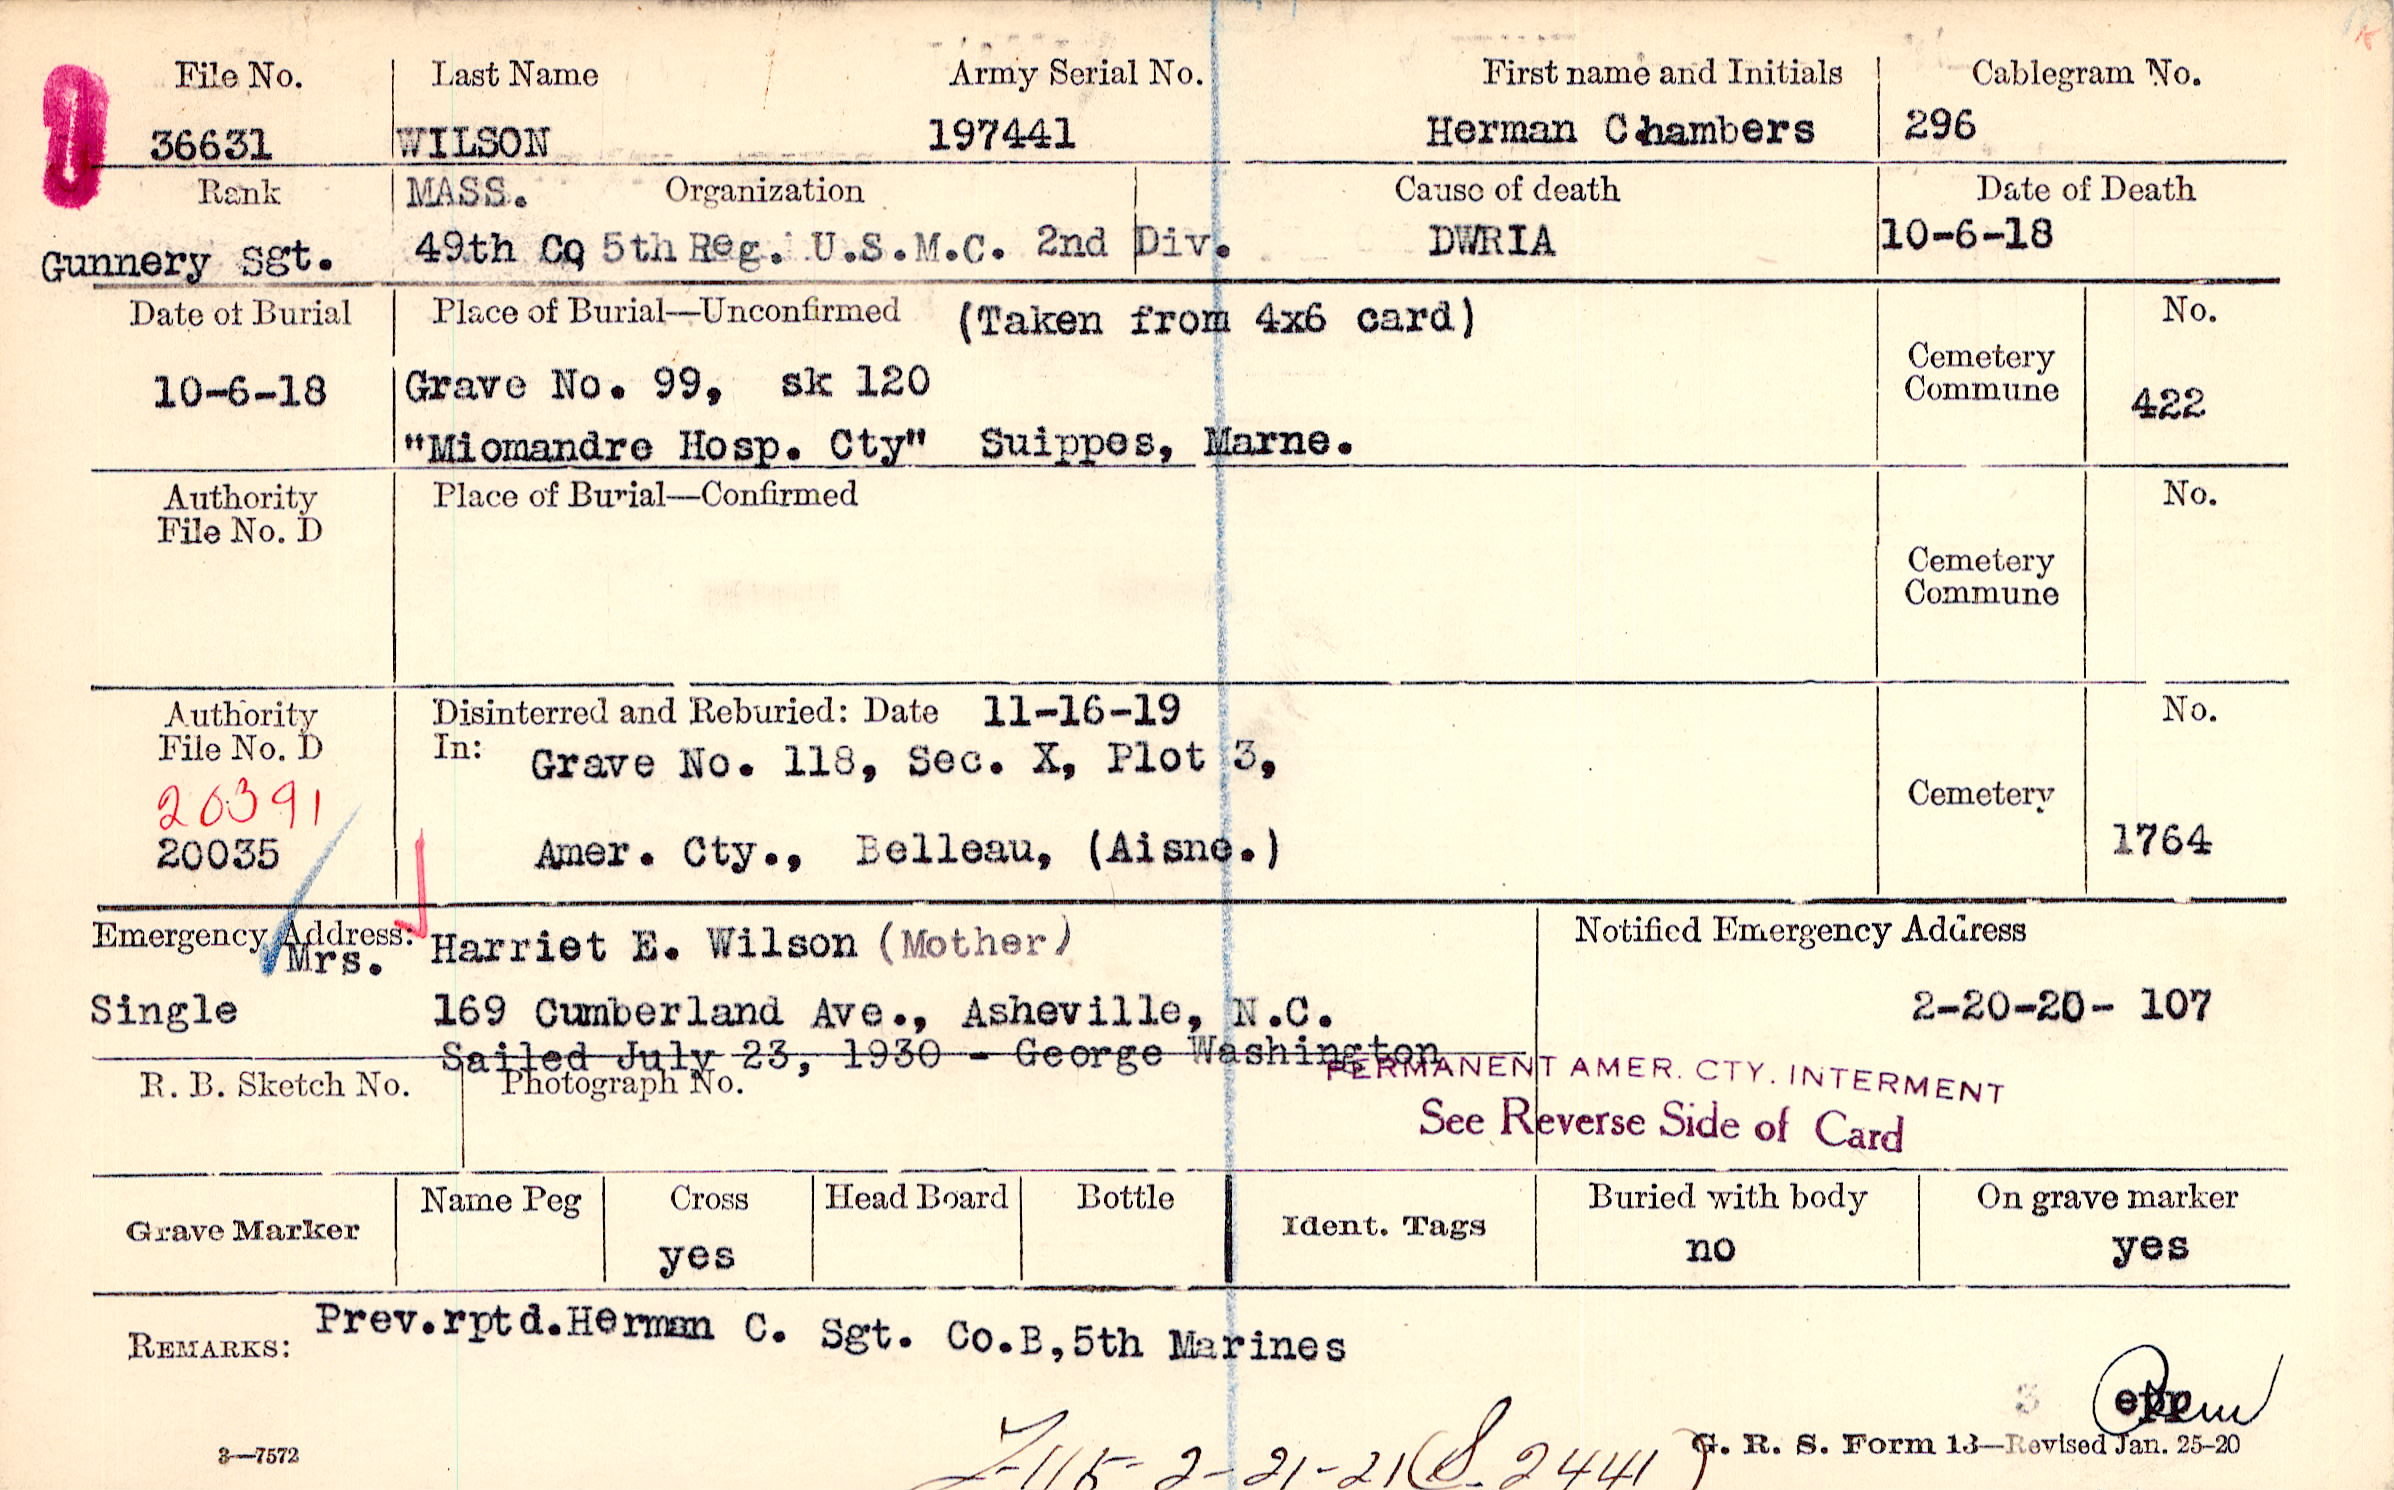 File No. Last Name Army Serial No. First name and Initials Cablegram No.
36631 WILSON 197441 Herman Chambers 296
Rank MASS. Organization Cause of death Date of Death
Gunnery Sgt. 49th Co 5th Reg. U.S.M.C. 2nd Div. DWRIA 10-6-18
Date of Burial Place of Burial—Unconfirmed (Taken from 4x6 card) No.
10-6-18 Grave No. 99, sk 120 Cemetery Commune 422
"Miomandre Hosp. Cty" Suippes, Marne.
Authority File No. D Place of Burial—Confirmed No.
Cemetery Commune
Authority Disinterred and Reburied: Date 11-16-19 No.
File No. D In: Grave No. 118, Sec. X, Plot 3,
20391 Cemetery
20035 Amer. Cty., Belleau, (Aisne.) 1764
Emergency Address: Mrs. Harriet E. Wilson (Mother) Notified Emergency Address
Single 169 Cumberland Ave., Asheville, N.C. 2-20-20- 107
Sailed July 23, 1930 - George Washington
R. B. Sketch No. Photograph No. PERMANENT AMER. CTY. INTERMENT
See Reverse Side of Card
Grave Marker Name Peg Cross Head Board Bottle Ident. Tags Buried with body On grave marker
yes no yes
REMARKS: Prev.rptd.Herman C. Sgt. Co.B,5th Marines
3
3—7572 2-21-21 S. 2441 G. R. S. Form 13—Revised Jan. 25-20